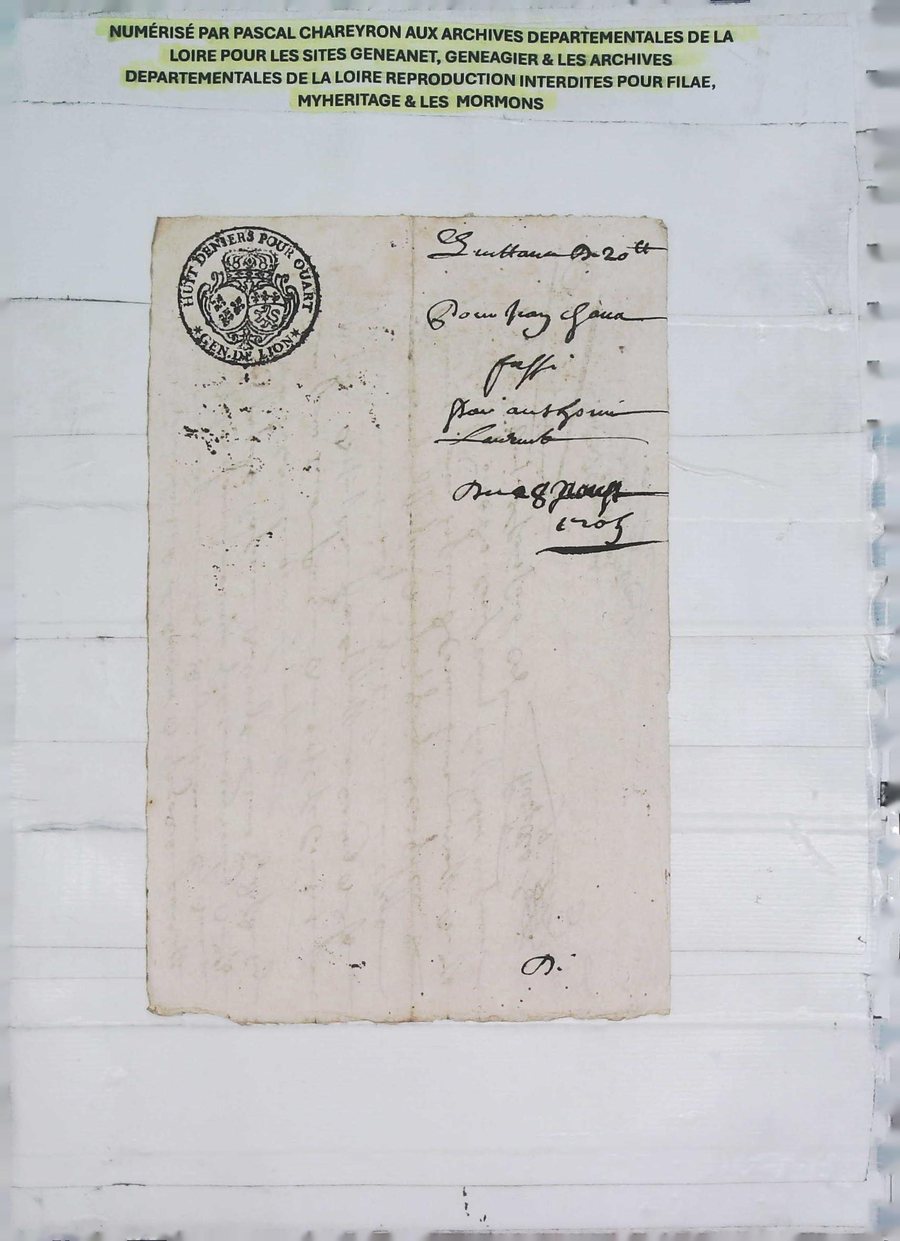 NUMÉRISÉ PAR PASCAL CHAREYRON AUX ARCHIVES DEPARTEMENTALES DE LA
LOIRE POUR LES SITES GENEANET, GENEAGIER & LES ARCHIVES
DEPARTEMENTALES DE LA LOIRE REPRODUCTION INTERDITES POUR FILAE,
MYHERITAGE & LES MORMONS
HUIT DENIERS POUR QUART
GEN. DE LION
Quittance De 20 tt
Pour
par anthoine
Laurent
Du 28
1705
D.